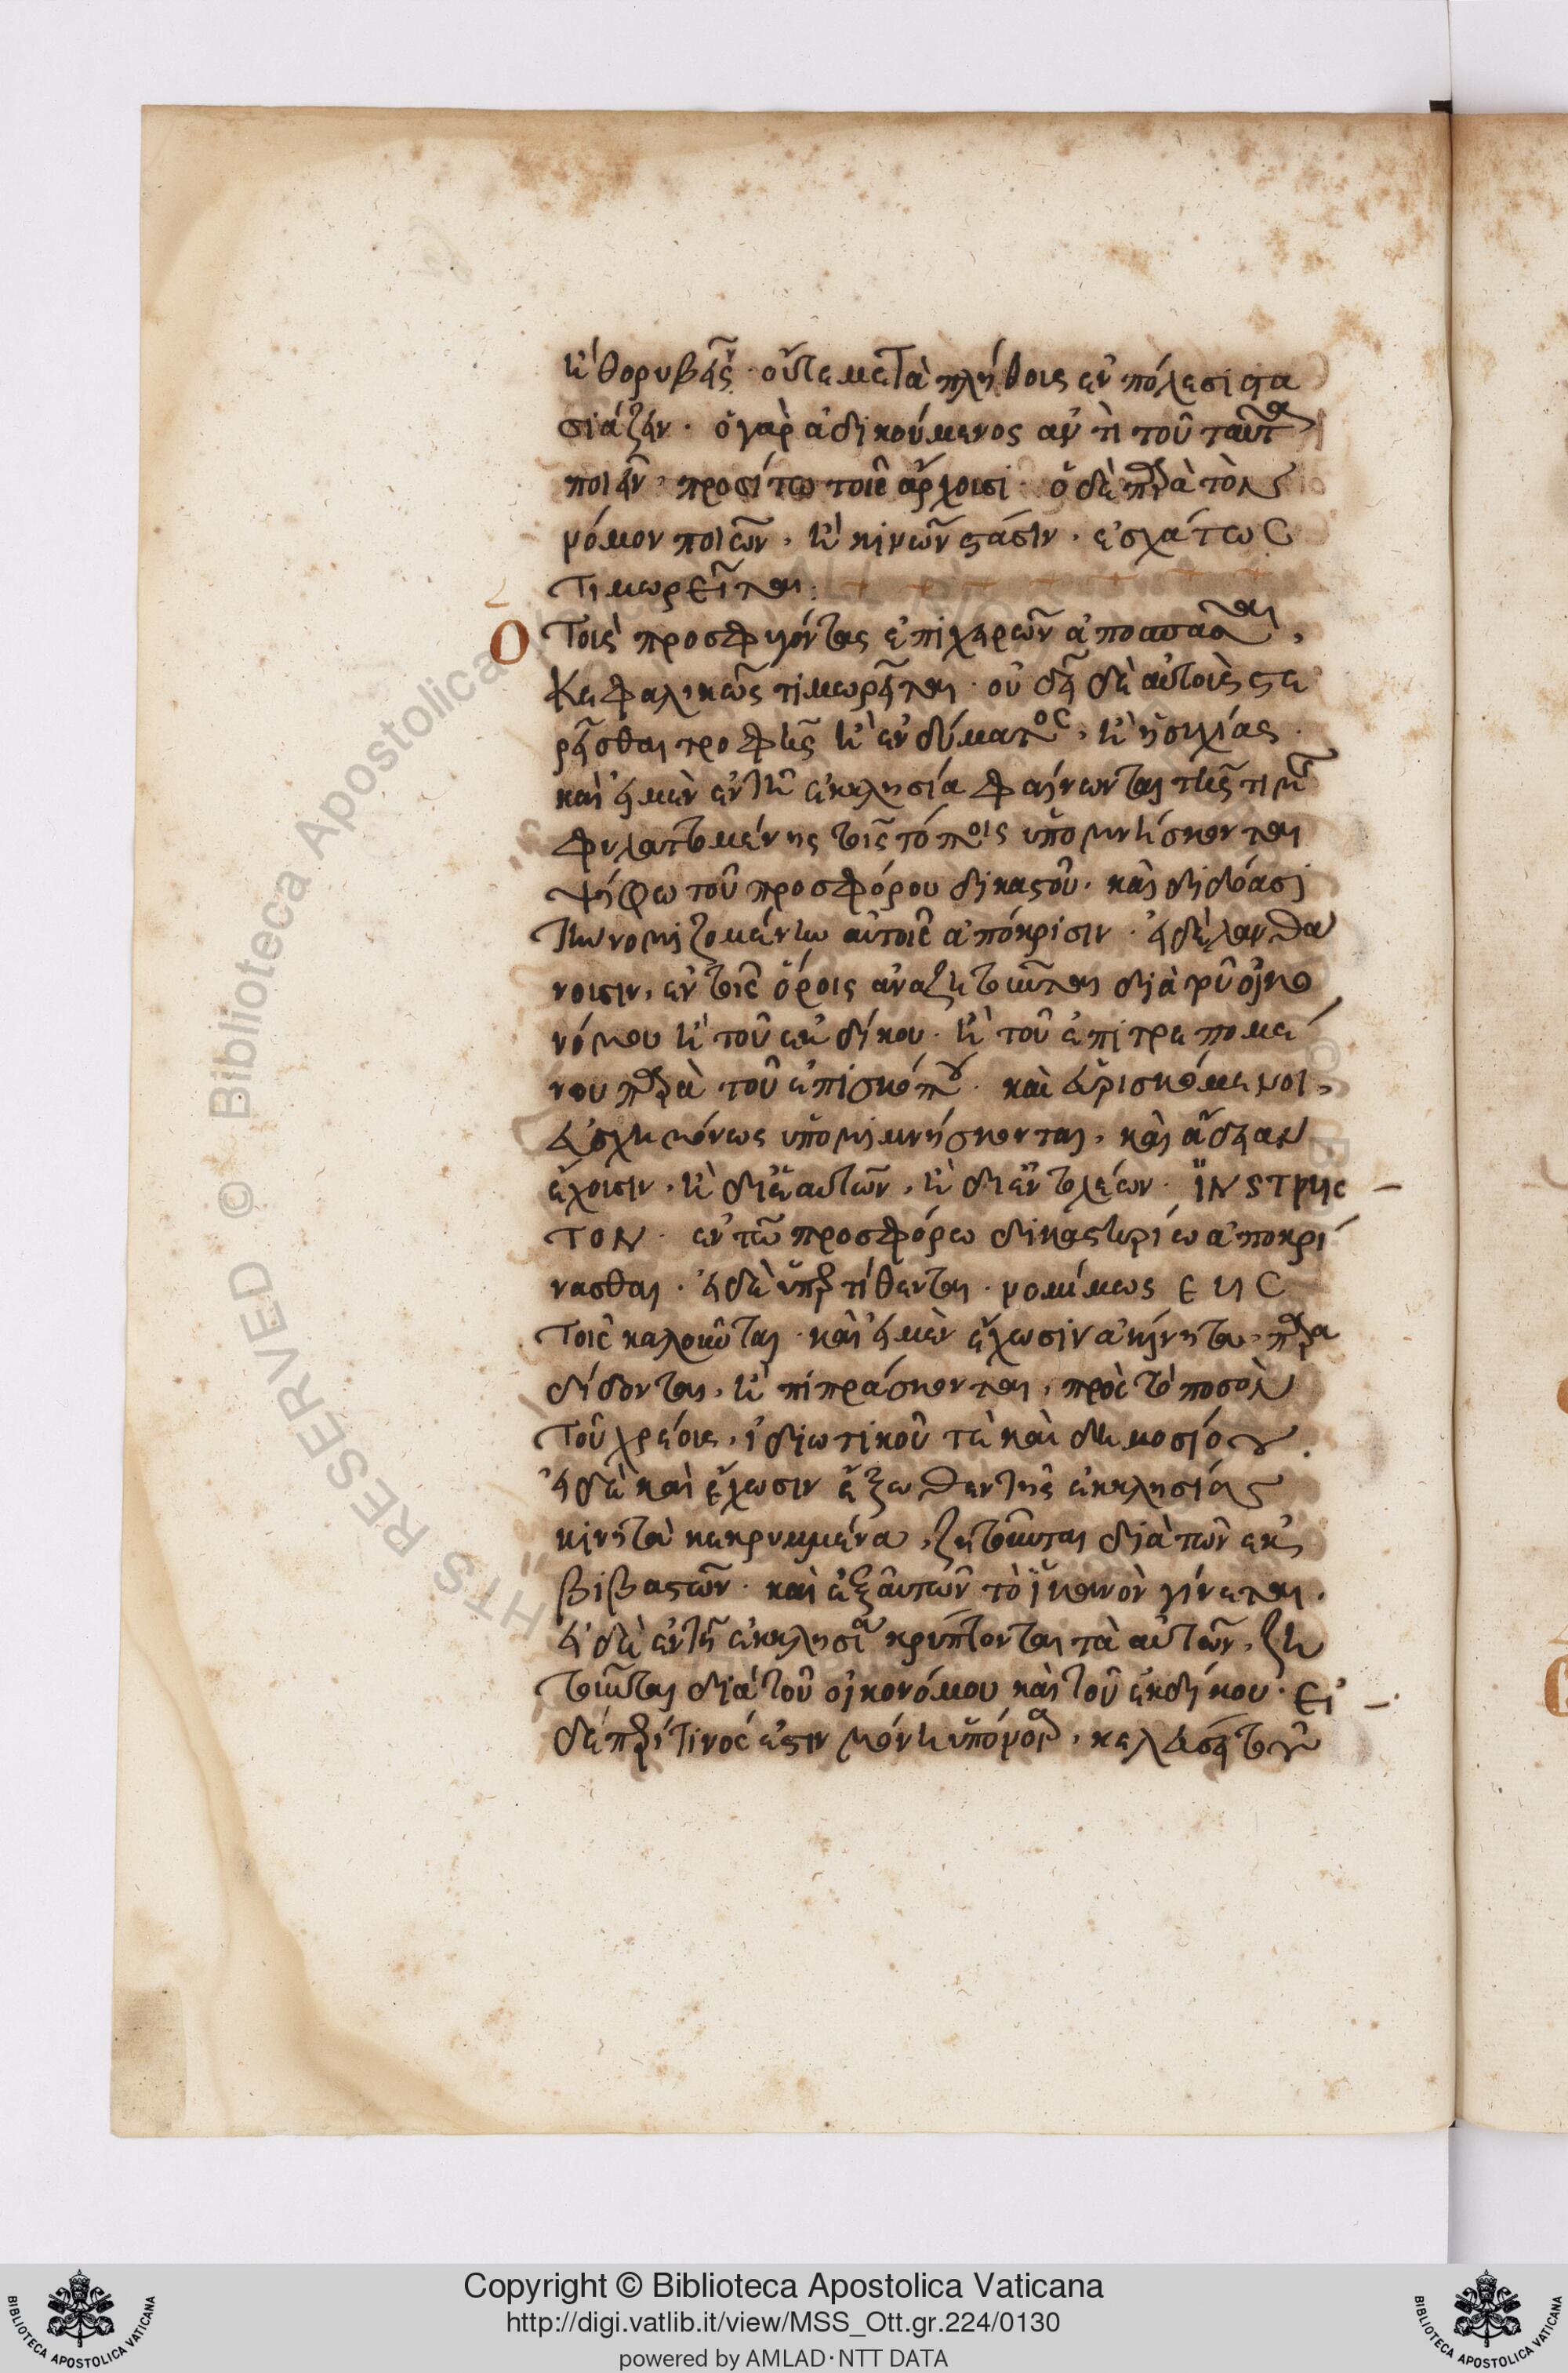 κ θορυβεῖν. οὔτε μετὰ πλήθους ἐν πόλεσι στα
σιάζειν. ὁ γὰρ ἀδικούμενος ἀντὶ τοῦ ταῦτα
ποιεῖν, προσίτω τοῖς ἄρχουσι. ὁ δὲ παρὰ τὸν
νόμον ποιῶν, κ κινῶν στάσιν, ἐσχάτως
τιμωρεῖται:
Ὁ τοὺς προσφυγόντας ἐπιχειρῶν ἀποσπᾶσθαι,
κεφαλικῶς τιμωρεῖται. οὐ δεῖ δὲ αὐτοὺς στε
ρεῖσθαι τροφῆς κ ἐνδύματος, κ ἡσυχίας.
καὶ εἰ μὲν ἐν τῆ ἐκκλησία φαίνωνται τῆς τιμῆς
φυλαττομένης τοῖς τόποις ὑπομνήσκονται
ψήφω τοῦ προσφόρου δικαστοῦ. καὶ διδόασι
τὴν νομιζομένην αὐτοῖς ἀπόκρισιν. εἰ δὲ λανθά
νουσιν, ἐν τοῖς ὅροις ἀναζητοῦνται διὰ τοῦ οἰκο
νόμου κ τοῦ ἐκδίκου. κ τοῦ ἐπιτρεπομέ
νου παρὰ τοῦ ἐπισκόπου. καὶ εὑρισκόμενοι,
εὐσχημόνως ὑπομιμνήσκονται, καὶ ἄδειαν
ἔχουσιν, κ δι' ἑαυτῶν, κ δι' ἐντολέων. ἰNSTρυc
TON. ἐν τῶ προσφόρω δικαστηρίω ἀποκρί
νασθαι. εἰ δὲ ὑπερτίθενται. νομίμως εκς
τοῖς καλοῦνται. καὶ εἰ μὲν ἔχωσιν ἀκίνητα, παρα
δίδονται, κ πιπράσκονται, πρὸς τὸ ποσὸν
τοῦ χρέους, ἰδιωτικοῦ τε καὶ δημοσίου.
εἰ δὲ καὶ ἔχωσιν ἔξωθεν τῆς ἐκκλησίας
κινητὰ κεκρυμμένα, ζητοῦνται διὰ τῶν ἐκ
βιβαστῶν. καὶ ἐξ αὐτῶν τὸ ἱκανὸν γίνεται.
εἰ δὲ ἐν τῆ ἐκκλησία κρύπτονται τὰ αὐτῶν, ζη
τοῦνται διὰ τοῦ οἰκονόμου καὶ τοῦ ἐκδίκου. εἰ
δὲ περί τινός ἐστιν μόνη ὑπόνοια, κελεύσει τοῦ
Copyright © Biblioteca Apostolica Vaticana
http://digi.vatlib.it/view/MSS_Ott.gr.224/0130
powered by AMLAD·NTT DATA